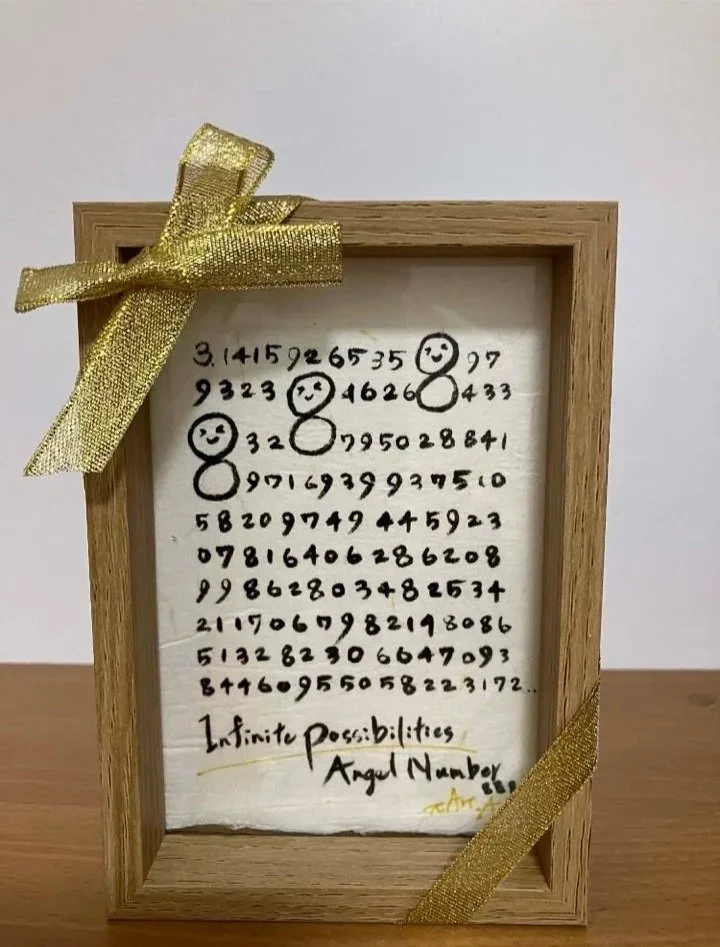 3.1415926535897
932384626433
832795028841
9716939937510
58209749445923
07816406286208
99862803482534
2117067982148086
513282306647093
84460955058223172..
Infinite Possibilities
Angel Number